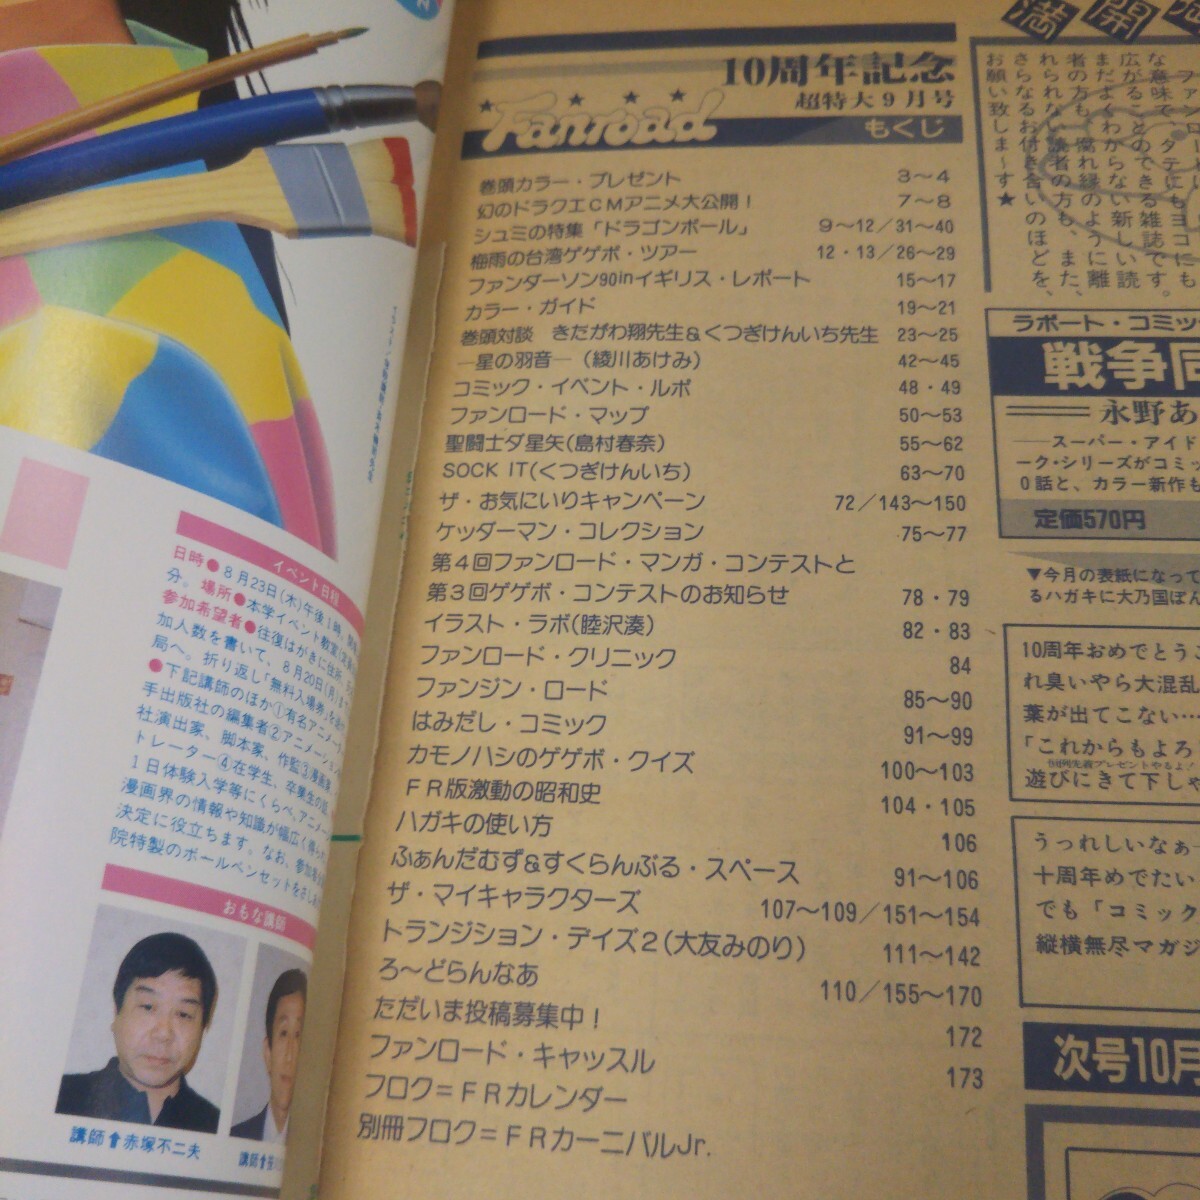 10周年記念
超特大9月号
Fanroad
もくじ
巻頭カラー・プレゼント 3〜4
幻のドラクエCMアニメ大公開! 7〜8
シュミの特集「ドラゴンボール」 9〜12/31〜40
梅雨の台湾ゲゲボ・ツアー 12・13/26〜29
ファンダーソン90inイギリス・レポート 15〜17
カラー・ガイド 19〜21
巻頭対談 きたがわ翔先生&くつぎけんいち先生 23〜25
―星の羽音―(綾川あけみ) 42〜45
コミック・イベント・ルポ 48・49
ファンロード・マップ 50〜53
聖闘士ダ星矢(島村春奈) 55〜62
SOCK IT(くつぎけんいち) 63〜70
ザ・お気にいりキャンペーン 72/143〜150
ケッダーマン・コレクション 75〜77
第4回ファンロード・マンガ・コンテストと
第3回ゲゲボ・コンテストのお知らせ 78・79
イラスト・ラボ(睦沢湊) 82・83
ファンロード・クリニック 84
ファンジン・ロード 85〜90
はみだし・コミック 91〜99
カモノハシのゲゲボ・クイズ 100〜103
FR版激動の昭和史 104・105
ハガキの使い方 106
ふぁんだむず&すくらんぶる・スペース 91〜106
ザ・マイキャラクターズ 107〜109/151〜154
トランジション・デイズ2(大友みのり) 111〜142
ろ〜どらんなあ 110/155〜170
ただいま投稿募集中! 172
ファンロード・キャッスル 173
フロク=FRカレンダー
別冊フロク=FRカーニバルJr.
満開
広がることのできる雑誌です。
まだよくわからない新しい読
者の方も、腐れ縁のように離
れられない読者の方も、また、
さらなるお付き合いのほどを、
お願い致しま〜す★
ラポート・コミッ
戦争同
永野あ
―スーパー・アイド
ーク・シリーズがコミッ
0話と、カラー新作も
定価570円
▼今月の表紙になって
るハガキに大乃国ぽん
10周年おめでとうご
れ臭いやら大混乱
葉が出てこない…
「これからもよろ
恒例先着プレゼントやるよ!
遊びにきて下しゃ
うっれしいなぁー
十周年めでたい
でも「コミック
縦横無尽マガジ
次号10月
イベント日程
日時●8月23日(木)午後1時、
分。場所●本学イベント教室
参加希望者●往復はがきに住所、
加人数を書いて、8月20日(月)
局へ。折り返し「無料入場券」を
●下記講師のほか①有名アニメ
手出版社の編集者②アニメーション
社演出家、脚本家、作監③漫画家、
トレーター④在学生、卒業生の
1日体験入学等にくらべ、アニメー
漫画界の情報や知識が幅広く得られ
決定に役立ちます。なお、参加
院特製のボールペンセットを
おもな講師
講師⬆赤塚不二夫
講師⬆